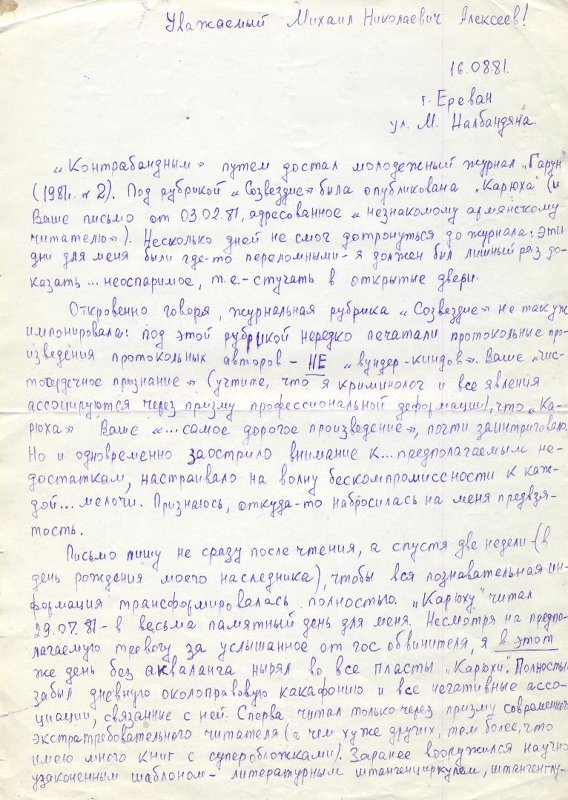 Уважаемый Михаил Николаевич Алексеев!
16.0881.
г. Ереван
ул. М. Налбандяна.
"Контрабандным" путем достал молодежный журнал "Гарун"
(1981г. №2). Под рубрикой "Созвездие" была опубликована "Карюха" (и
Ваше письмо от 03.02.81, адресованное "незнакомому армянскому
читателю"). Несколько дней не смог дотронуться до журнала: эти
дни для меня были где-то переломными - я должен был лишный раз до-
казать... неоспаримое, т.е. - стучать в открытые двери.
Откровенно говоря, журнальная рубрика "Созвездие" не так уж
импонировала: под этой рубрикой нередко печатали протокольные про-
изведения протокольных авторов - НЕ "вундер-киндов". Ваше "чис-
тосердечное признание" (учтите, что я криминолог и все явления
ассоциируются через призму профессиональной деформации), что "Ка-
рюха" Ваше "...самое дорогое произведение", почти заинтриговало.
Но и одновременно заострило внимание к... предполагаемым не-
достаткам, настраивало на волну бескомпромиссности к каж-
дой... мелочи. Признаюсь, откуда-то набросилась на меня предвзя-
тость.
Письмо пишу не сразу после чтения, а спустя две недели - (в
день рождения моего наследника), чтобы вся познавательная ин-
формация трансформировалась полностью. "Карюху" читал
29.07.81 - в весьма памятный день для меня. Несмотря на предпо-
лагаемую тревогу за услышанное от гос обвинителя, я в этот
же день без акваланга нырял во все пласты "Карюхи". Полностью
забыл дневную околоправовую какафонию и все негативные ассо-
циации, связанные с ней. Сперва читал только через призму современного
экстратребовательного читателя (а чем хуже других, тем более, что
имею много книг с суперобложками). Заранее вооружился научно
узаконенным шаблоном - литературным штангенциркулем, штангенглу-